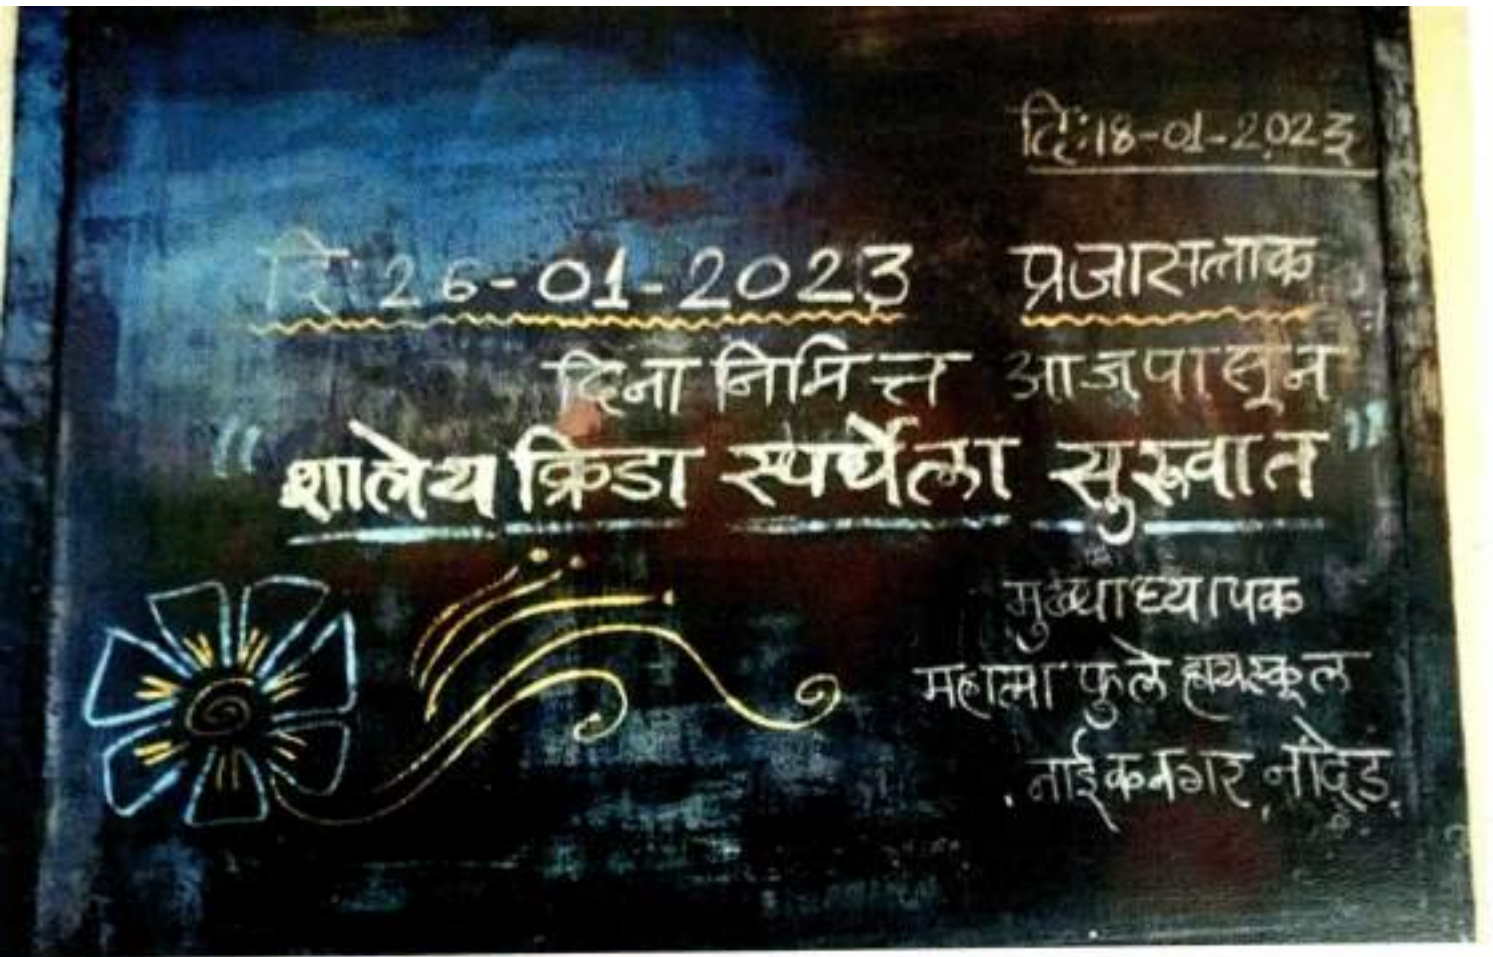 दि:18-01-2023
दि: 26-01-2023 प्रजासत्ताक
दिना निमित्त आजपासून
"शालेय क्रिडा स्पर्धेला सुरूवात"
मुख्याध्यापक
महात्मा फुले हायस्कूल
नाईकनगर, नांदेड.